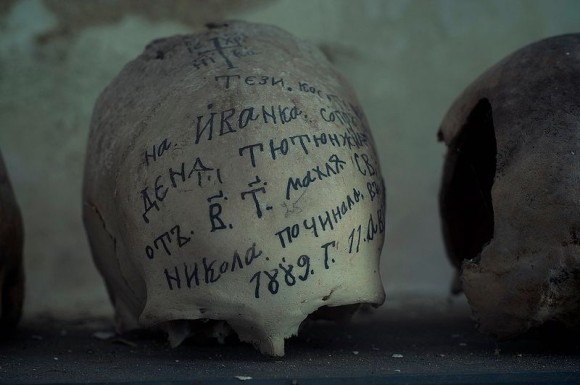 Тези. кости
на. Иванка. сопр
Дена, Тютюнжи
отъ. В. Т. махла СВ.
никола. починала. въ
1889. Г. 11. АВ